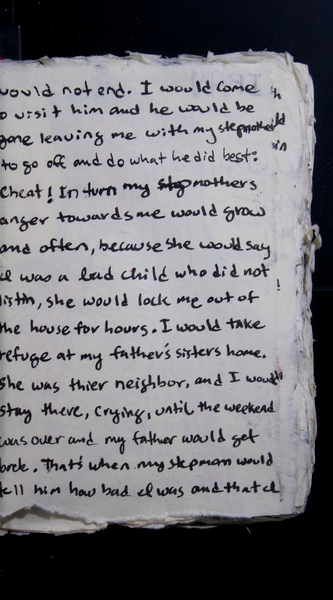 would not end. I would come
o visit him and he would be
gone leaving me with my stepmother
to go off and do what he did best:
Cheat! In turn my stepmothers
anger towards me would grow
and often, because she would say
I was a bad child who did not
listin, she would lock me out of
the house for hours. I would take
refuge at my father's sisters home.
She was thier neighbor, and I would
stay there, crying, until the weekend
was over and my father would get
back. That's when my stepmom would
tell him how bad I was and that I